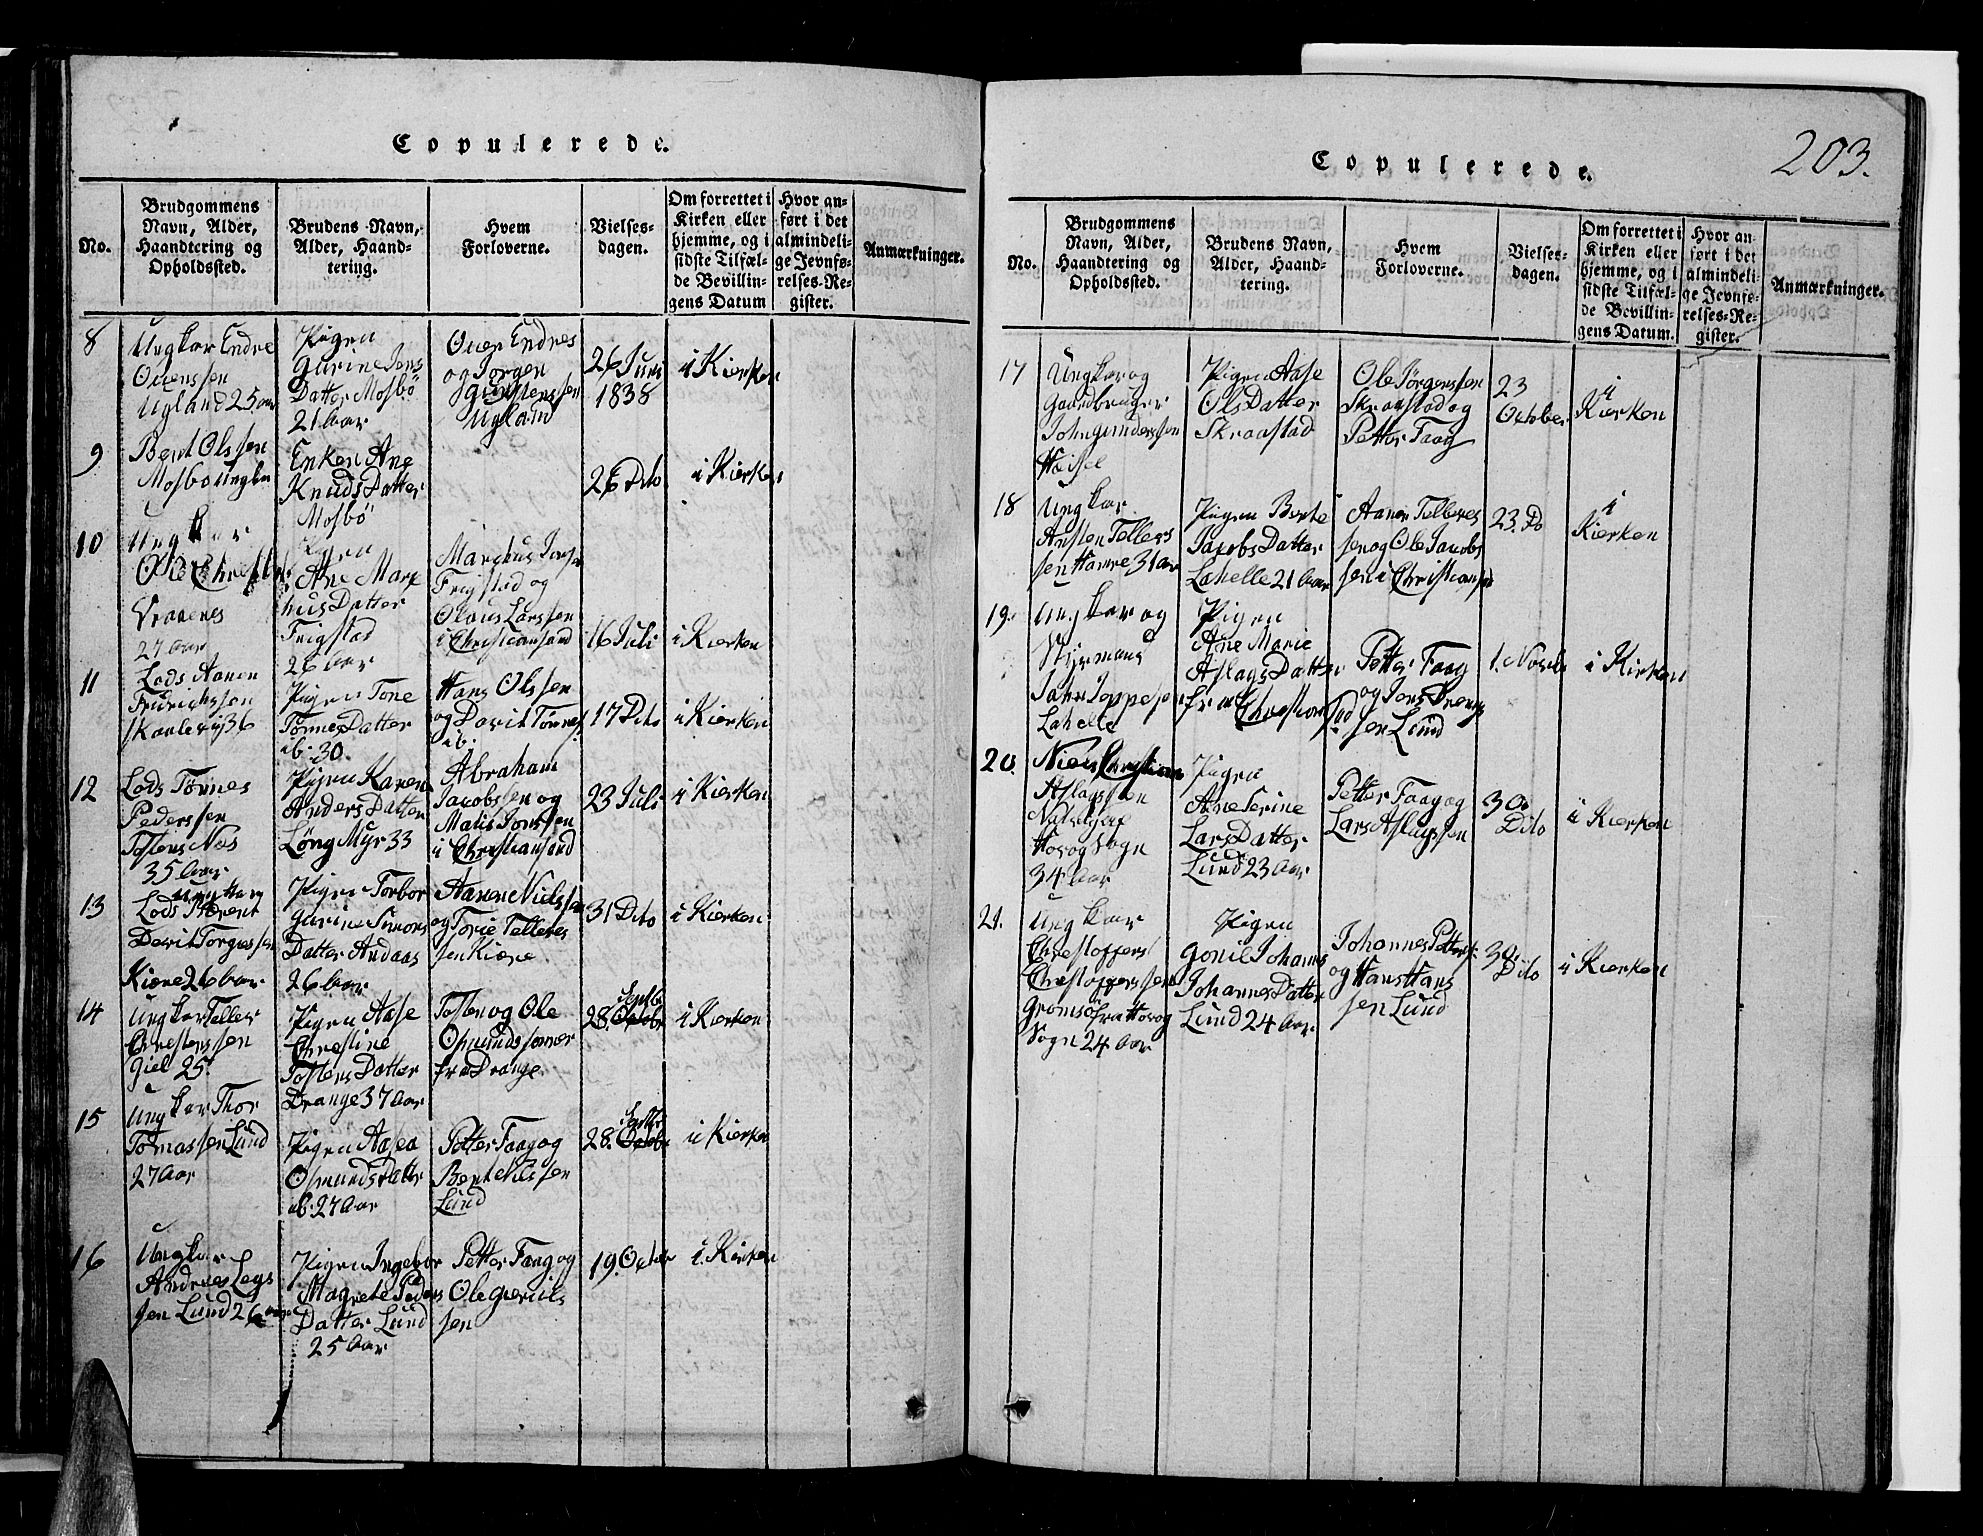 Copulerede.
No.
Brudgommens
Navn, Alder,
Haandtering og
Opholdssted.
Brudens Navn,
Alder, Haand-
tering.
Hvem
Forloverne.
Vielses-
dagen.
Om forrettet i
Kirken eller
hjemme, og i
sidste Tilfæl-
de Bevillin-
gens Datum
Hvor an-
ført i det
almindeli-
ge Jevnfø-
relses-Re-
gister.
Anmærkninger.
8
Ungkar Endre
Ouenssen
Ugland 25 aar
Pigen
Gurine Jens
Datter Mosbö
21 Aar
Ouen Endres
og Jörgen
Ugland
26 Juni
1838
i Kierken
9
Bent Olssen
Mosbö
Enken Ane
Knuds Datter
Mosbö
26 Dito
i Kierken
10
Ungkar
Ole
27 Aar
Pigen
Ane Mark
hus Datter
Frigstad
26 Aar
Marckus
Frigstad og
Olaus Larssen
i Christiansand
16 Juli
i Kierken
11
Lods Aanen
Fridrichssen
36
Pigen Tone
Tönnes Datter
ib: 30.
Hans Olssen
og Davit Tönnes
ib:
17 Dito
i Kierken
12
Lods Tönnes
Pederssen
Tostens Næs
35 Aar
Pigen Karen
Anders Datter
Löng Myr 33
Abraham
Jacobssen og
Matis Jonssen
i Christiansand
23 Juli
i Kierken
13
Ungkar
Lods Berent
Davit Torgessen
Kiære 26 Aar
Pigen Torbor
Gurine Simons
Datter Andaas
26 Aar
Aanen Nielssen
og Torie Tellefs
sen Kiære
31 Dito
i Kierken
14
Ungkar Tellef
Chrestenssen
Giel 25
Pigen Aase
Chrestine
Tostens Datter
Drange 37 Aar
Tosten og Ole
Osmundssønner
fra Drange
Septbr
28. Octobr
i Kierken
15
Ungkar Thor
Tomassen Lund
27 Aar
Pigen Aasea
Osmunds Datter
ib: 27 Aar
Petter Faag og
Bent Nilssen
Lund
Septbr
28. Octobr
i Kierken
16
Ungkar
Andreas
sen Lund 26 aar
Pigen Ingebor
Magrete Peders
Datter Lund
25 Aar
Petter Faag og
Ole
sen
19. Octbr
i Kierken
Copulerede.
203.
No.
Brudgommens
Navn, Alder,
Haandtering og
Opholdssted.
Brudens Navn,
Alder, Haand-
tering.
Hvem
Forloverne.
Vielses-
dagen.
Om forrettet i
Kirken eller
hjemme, og i
sidste Tilfæl-
de Bevillin-
gens Datum.
Hvor an-
ført i det
almindeli-
ge Jevnfø-
relses-Re-
gister.
Anmærkninger.
17
Ungkar og
Gaardbruger
John Gunderssen
Pigen Aase
Ols Datter
Skraastad
Ole Jörgenssen
Skraastad og
Petter Faag
23
October
i
Kierken
18
Ungkar
Austen Tellefs
sen Hamre 31 Aar
Pigen Berte
Jacobs Datter
Lahelle 21 Aar
Aanen Tellefs
sen og Ole Jacobs
sen i Christiansand
23. Do
i
Kierken
19.
Ungkar og
Styrmand
Lahelle
Pigen
Ane Marie
Aslags Datter
fra Christiansand
Petter Faag
og Jens
sen Lund
1. Novbr
i Kirken
20.
Niels Christian
Aslagssen
Høvog Sogn
34 Aar
Pigen
Ane Serine
Lars Datter
Lund 23 Aar
Petter Faag og
Lars Aslagssen
30
Dito
i Kierken
21.
Ungkar
Chrestoffer
Chrestofferssen
Grömsö fra Høvog
Sogn 24 Aar
Pigen
Gonil Johanne
Johannes Datter
Lund 24 Aar
Johannes Petters:
og Hans Hans
sen Lund
30.
Dito
i Kierken